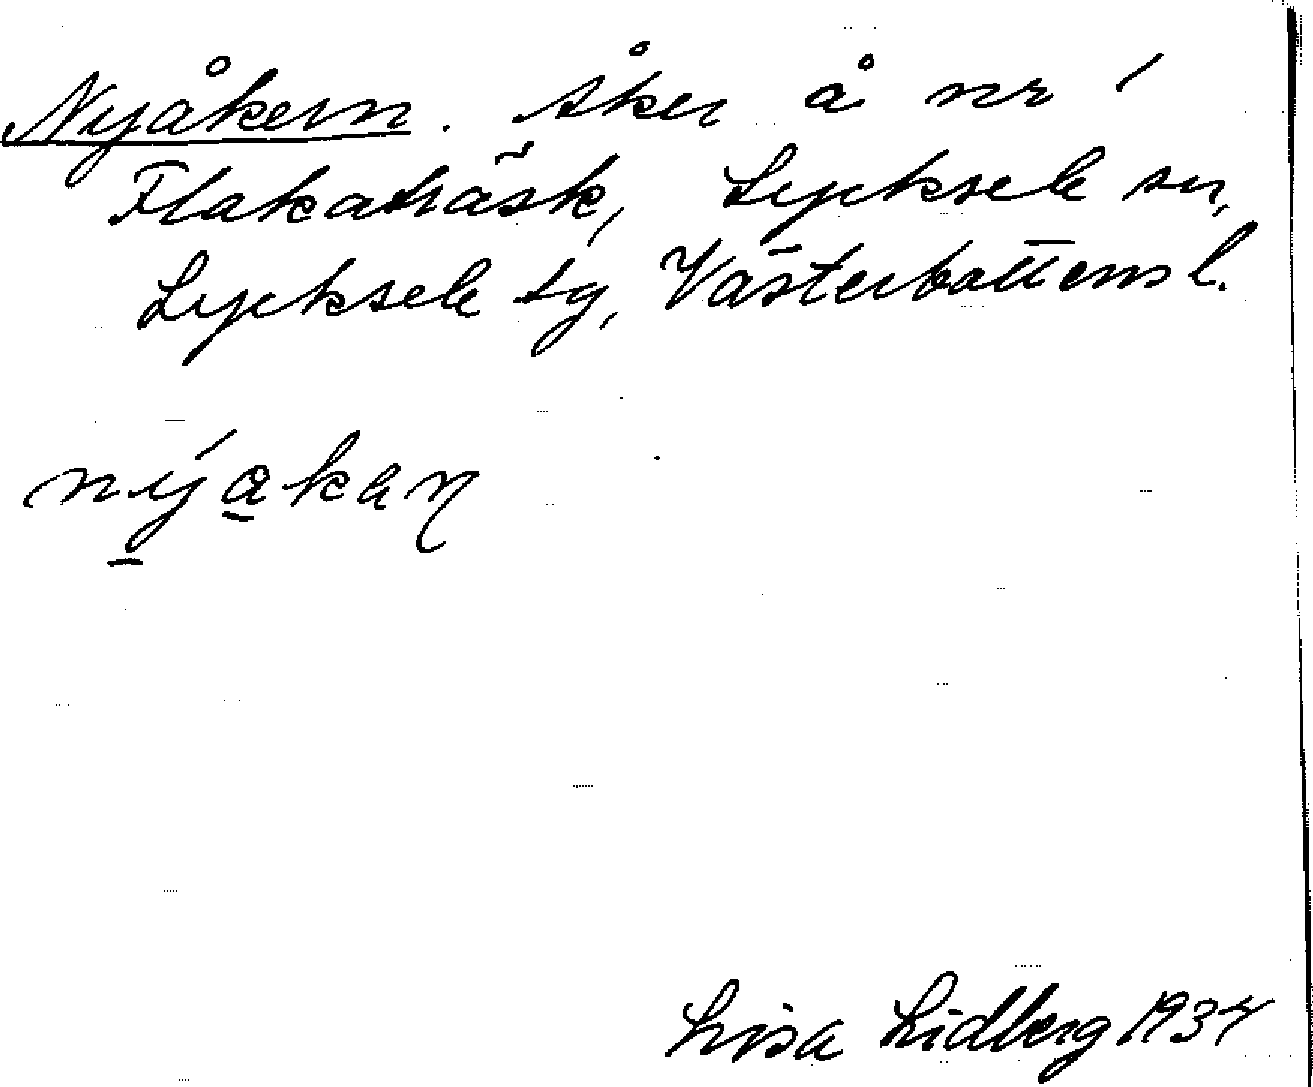 Nyåkern. Åker å nr 1
Flakaträsk, Lycksele sn,
Lycksele tg, Västerbottens l.
nýakaɳ
Lisa Lidberg 1934